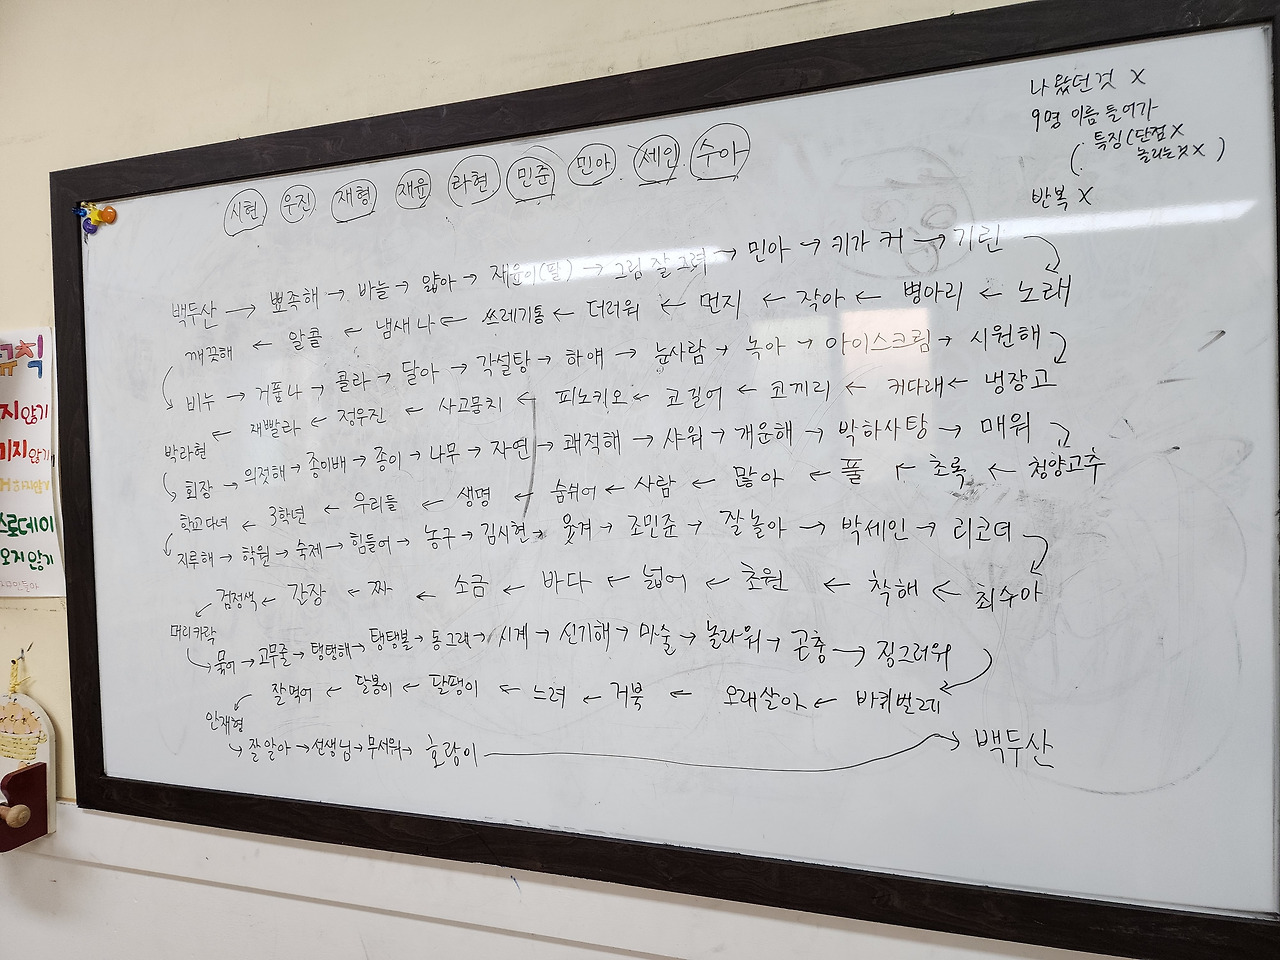 나왔던것 X
9명 이름 들어가
특징(단점X
놀리는것X)
반복 X
시현 우진 재형 재윤 라현 민준 민아 세인 수아
백두산 → 뾰족해 → 바늘 → 얇아 → 재윤이(팔) → 그림 잘 그려 → 민아 → 키가 커 → 기린
깨끗해 ← 알콜 ← 냄새나 ← 쓰레기통 ← 더러워 ← 먼지 ← 작아 ← 병아리 ← 노래
비누 → 거품나 → 콜라 → 달아 → 각설탕 → 하얘 → 눈사람 → 녹아 → 아이스크림 → 시원해
박라현 ← 재빨라 ← 정우진 ← 사고뭉치 ← 피노키오 ← 코길어 ← 코끼리 ← 커다래 ← 냉장고
회장 → 의젓해 → 종이배 → 종이 → 나무 → 자연 → 쾌적해 → 샤워 → 개운해 → 박하사탕 → 매워
학교다녀 ← 3학년 ← 우리들 ← 생명 ← 숨쉬어 ← 사람 ← 많아 ← 풀 ← 초록 ← 청양고추
지루해 → 학원 → 숙제 → 힘들어 → 농구 → 김시현 → 웃겨 → 조민준 → 잘놀아 → 박세인 → 리코더
검정색 ← 간장 ← 짜 ← 소금 ← 바다 ← 넓어 ← 초원 ← 착해 ← 최수아
머리카락
묶어 → 고무줄 → 탱탱해 → 탱탱볼 → 동그래 → 시계 → 신기해 → 마술 → 놀라워 → 곤충 → 징그러워
잘먹어 ← 달봉이 ← 달팽이 ← 느려 ← 거북 ← 오래살아 ← 바퀴벌레
안재형
잘알아 → 선생님 → 무서워 → 호랑이 → 백두산
지않기
미지않기
스로데이
오지않기